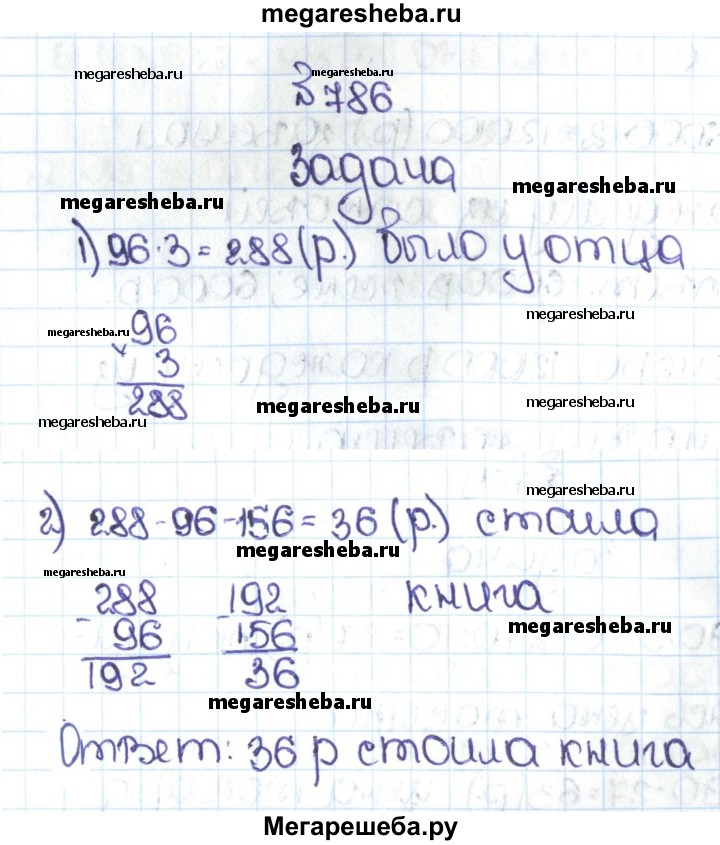 megaresheba.ru
megaresheba.ru
megaresheba.ru
№786
megaresheba.ru
Задача
megaresheba.ru
1) 96·3=288(р.) было у отца
megaresheba.ru
megaresheba.ru
96
× 3
288
megaresheba.ru
megaresheba.ru
megaresheba.ru
megaresheba.ru
2) 288-96-156=36(р.) стоила
megaresheba.ru
megaresheba.ru
книга
288 192
- 96 - 156
192 36
megaresheba.ru
megaresheba.ru
Ответ: 36 р стоила книга
Мегарешеба.ру